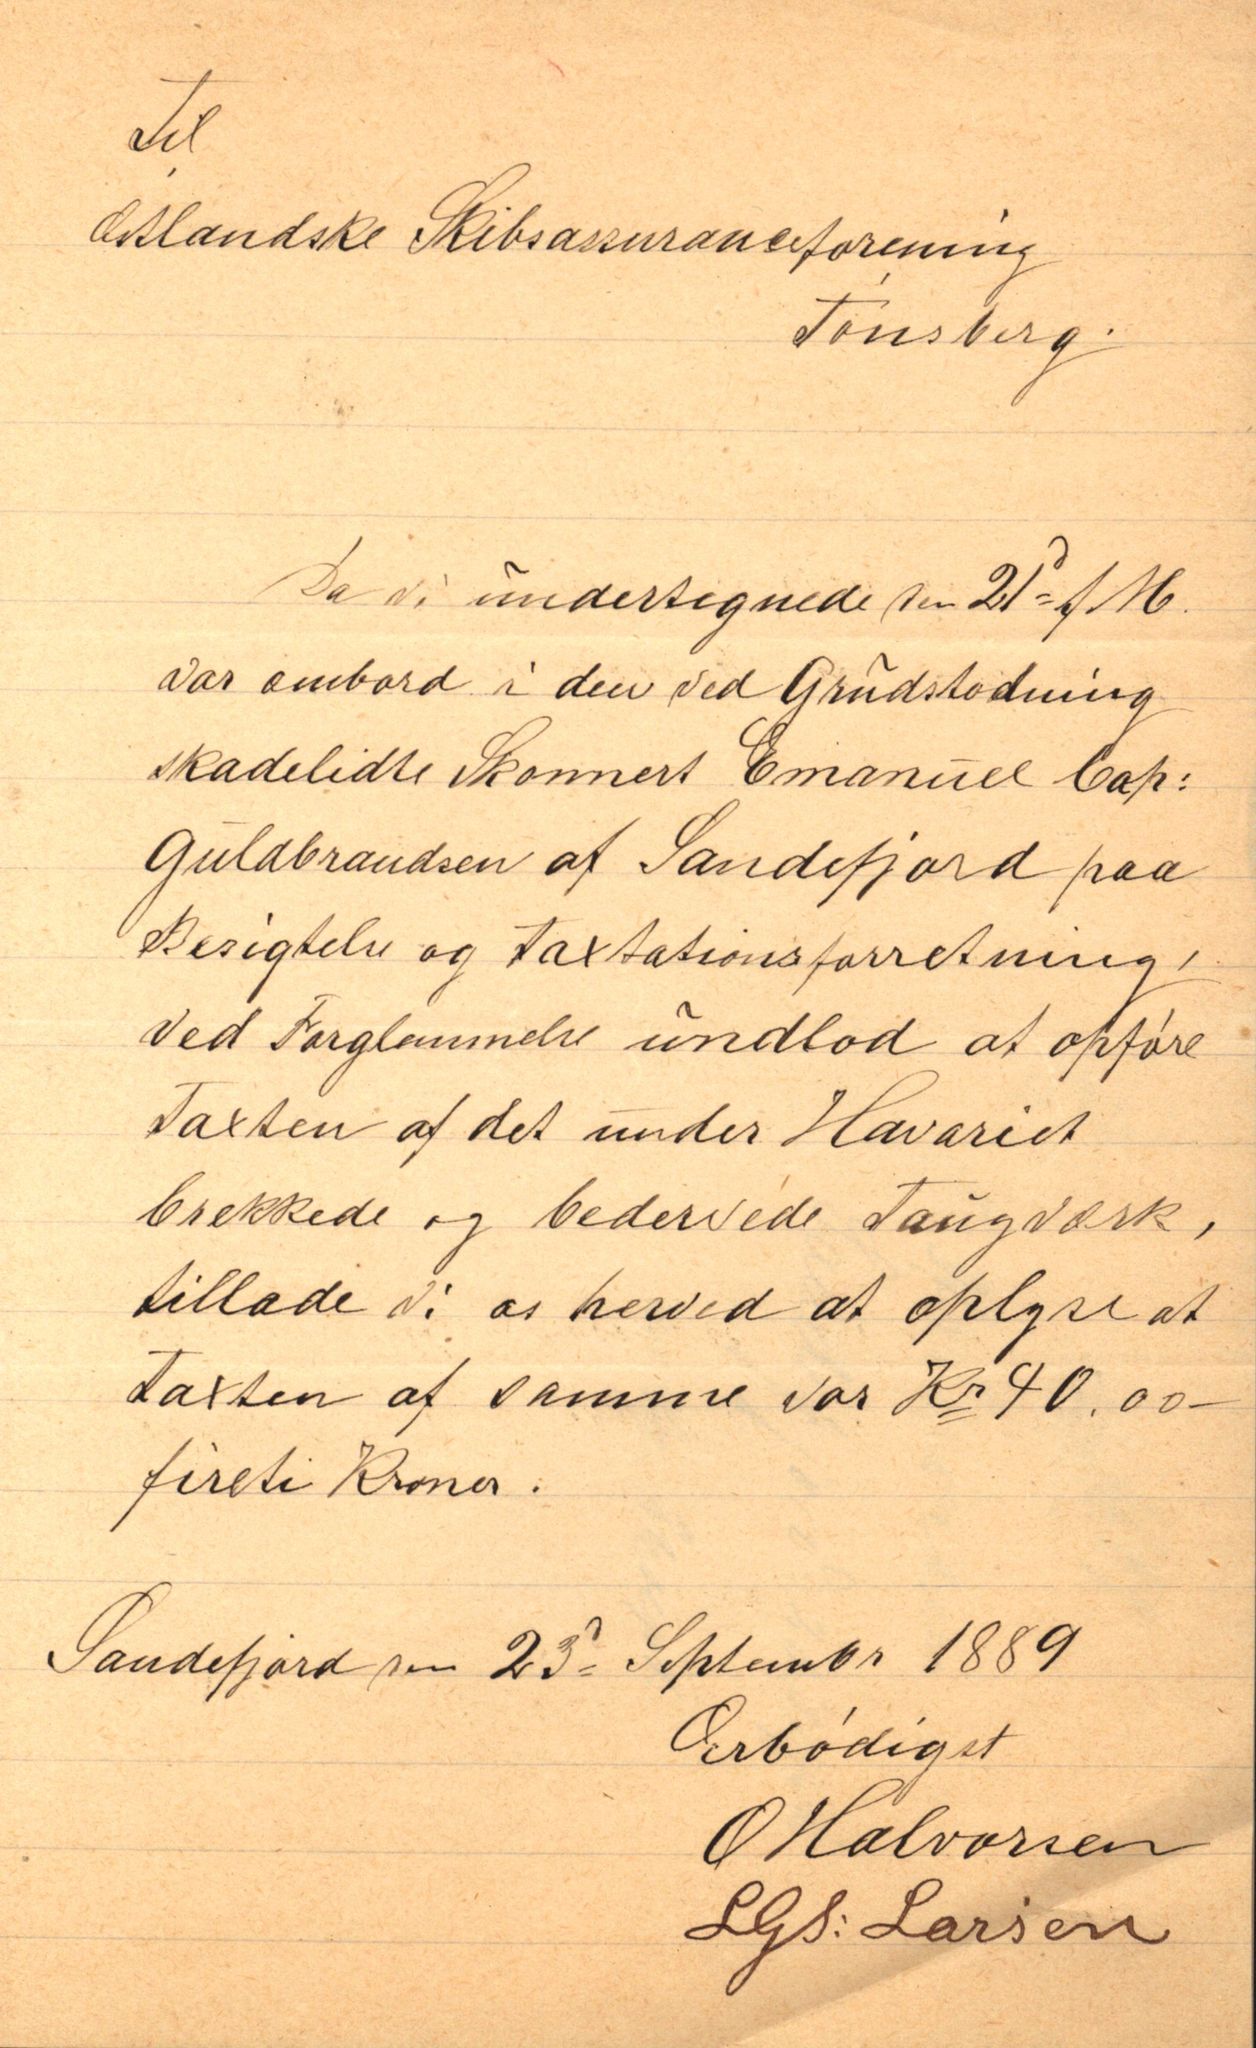 Til
Østlandske Skibsassuranceforening
Tønsberg.
Da vi undertegnede den 21d f M.
var ombord i den ved Grudstødning
skadelidte Skonnert Emanuel Cap:
Guldbrandsen af Sandefjord paa
Besigtelse og Taxtationsforretning,
ved Forglemmelse undlod at opføre
Taxten af det under Havariet
brekkede og bedervede Taugværk,
tillade vi os herved at oplyse at
Taxten af samme var Kr 40.00-
fireti Kroner.
Sandefjord den 23d September 1889
Ærbødigst
O Halvorsen
LGS: Larsen